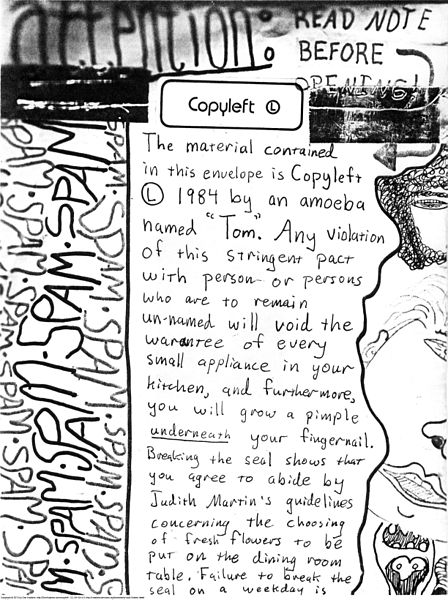 attention:
READ NOTE
BEFORE
OPENING!
Copyleft Ⓛ
The material contained
in this envelope is Copyleft
Ⓛ 1984 by an amoeba
named "Tom." Any violation
of this stringent pact
with person or persons
who are to remain
un-named will void the
warantee of every
small appliance in your
kitchen, and furthermore,
you will grow a pimple
underneath your fingernail.
Breaking the seal shows that
you agree to abide by
Judith Martin's guidelines
concerning the choosing
of fresh flowers to be
put on the dining room
table. Failure to break the
seal on a weekday is
SPAM·SPAM·SPAM·SPAM·SPAM
M·SPAM·SPAM·SPAM·SPAM
SPAM·SPAM·SPAM·SPAM